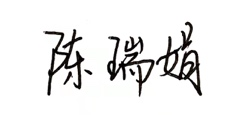 陈瑞娟